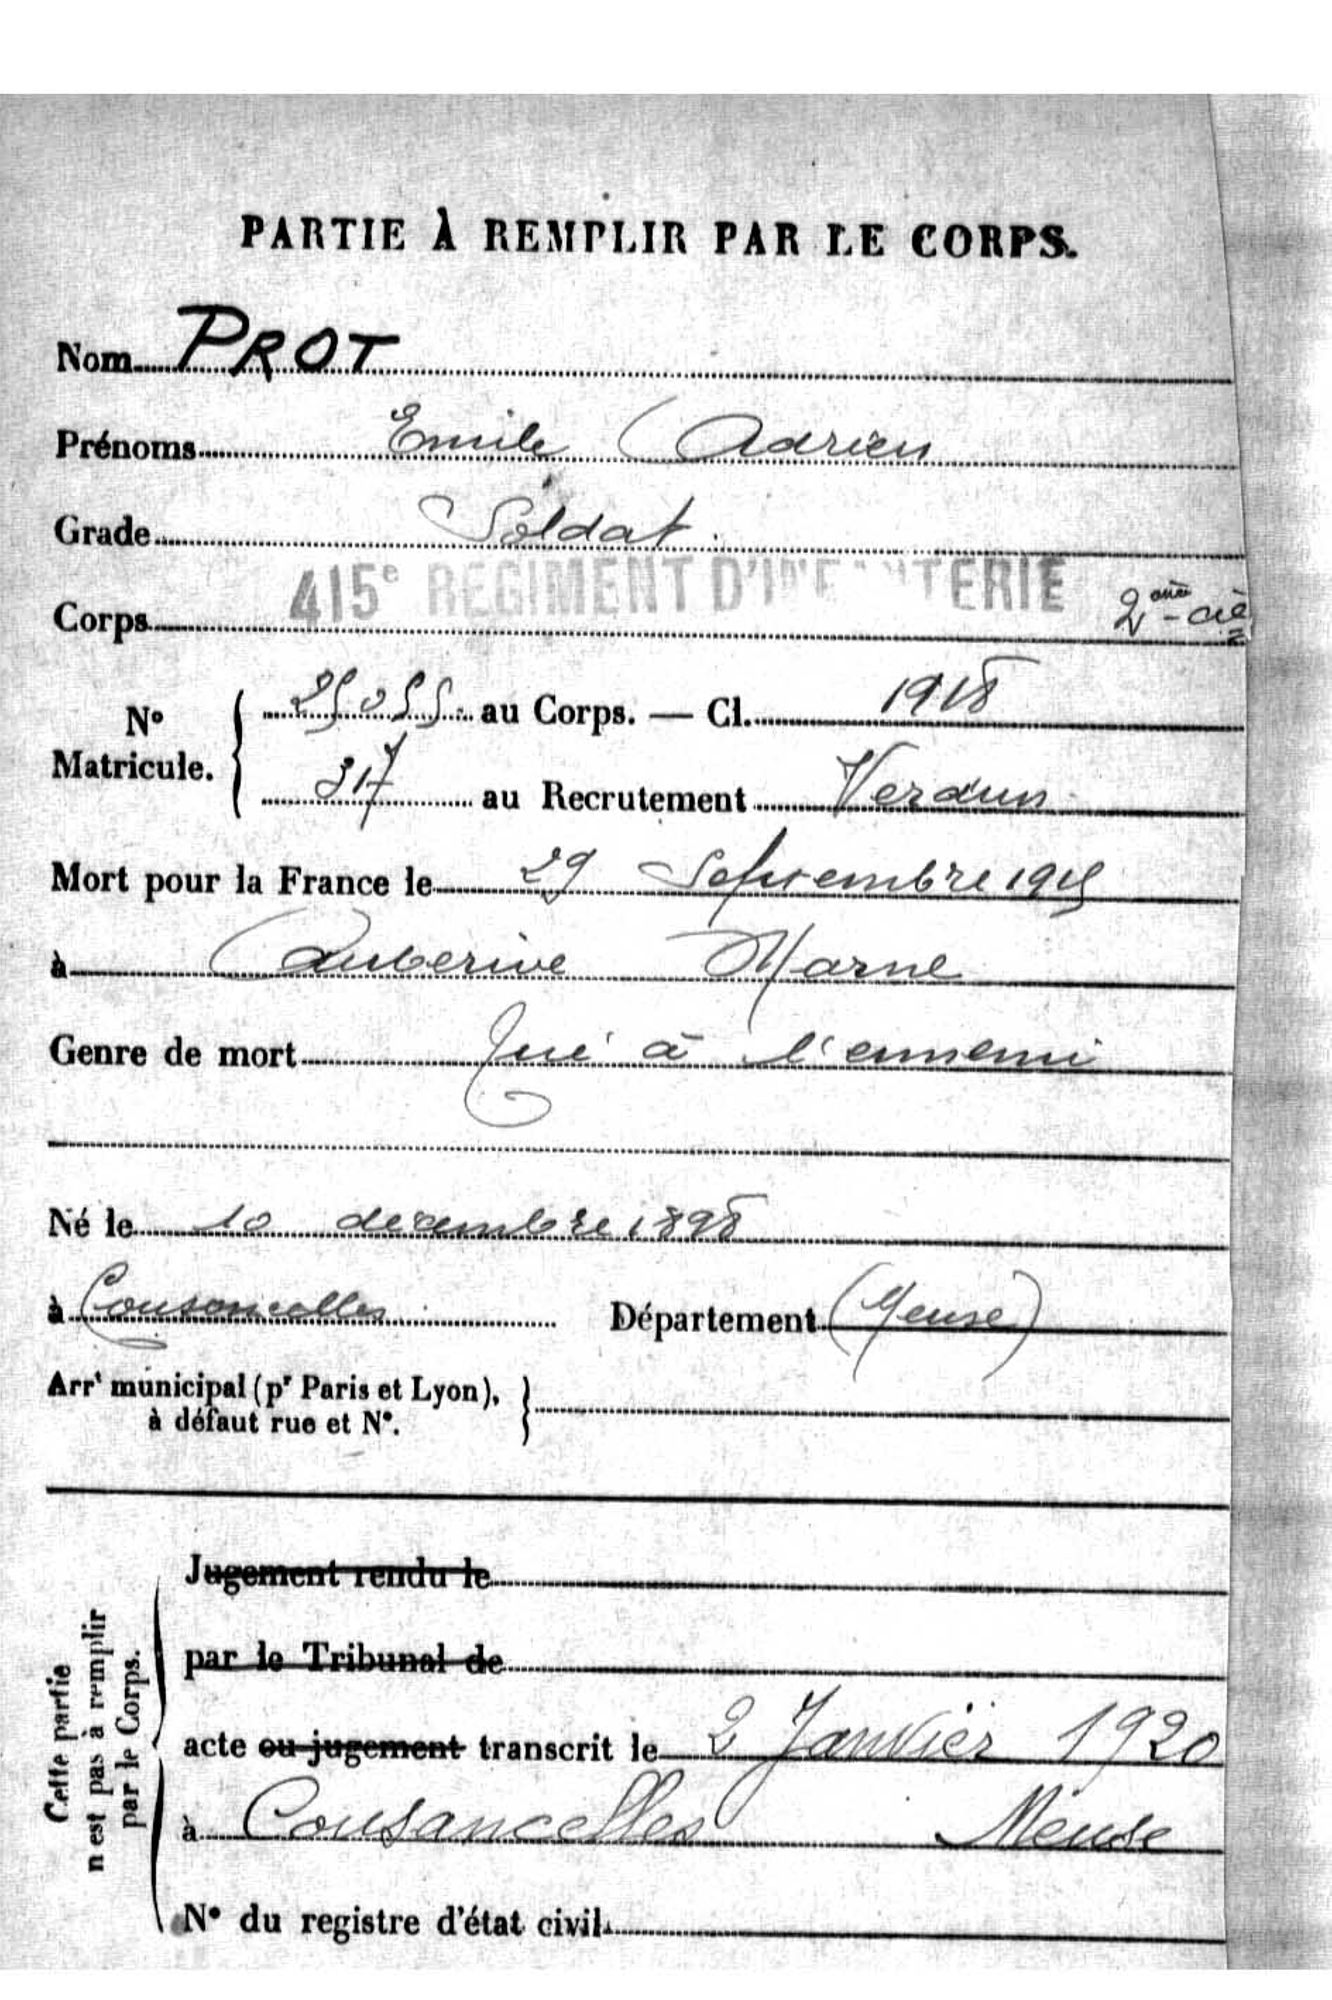 PARTIE À REMPLIR PAR LE CORPS.
Nom PROT
Prénoms Emile Adrien
Grade Soldat
Corps 415e REGIMENT D'INFANTERIE 2ème Cie
No Matricule. 25055 au Corps. — Cl. 1918
317 au Recrutement Verdun
Mort pour la France le 29 Septembre 1918
à Auberive Marne
Genre de mort Tué à l'ennemi
Né le 10 décembre 1898
à Cousancelles Département (Meuse)
Arrt municipal (pr Paris et Lyon),
à défaut rue et No.
Cette partie
n'est pas à remplir
par le Corps.
Jugement rendu le
par le Tribunal de
acte ou jugement transcrit le 2 Janvier 1920
à Cousancelles Meuse
No du registre d'état civil